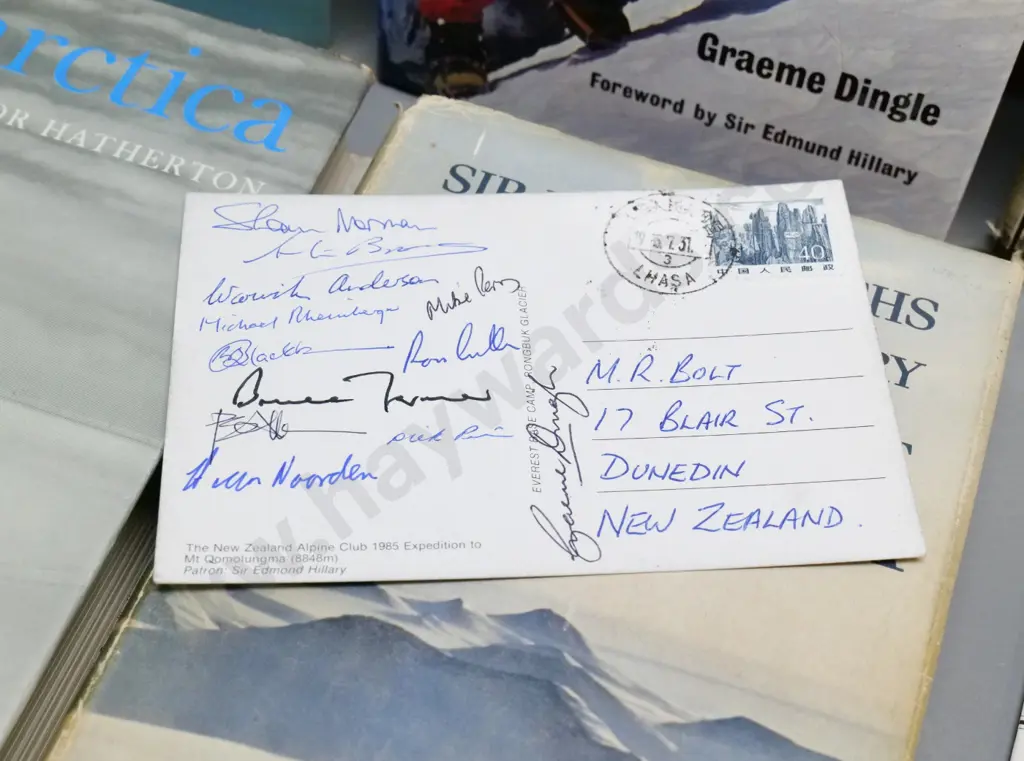 arctica
OR HATHERTON
Graeme Dingle
Foreword by Sir Edmund Hillary
SIR
HS
RY
Shaun Norman
Warwick Anderson
Michael Rheinberger
Mike Perry
Graeme Dingle
Dick Price
Noorden
The New Zealand Alpine Club 1985 Expedition to
Mt Qomolungma (8848m)
Patron: Sir Edmond Hillary
EVEREST BASE CAMP, RONGBUK GLACIER
LHASA
40
中国人民邮政
M.R. BOLT
17 BLAIR ST.
DUNEDIN
NEW ZEALAND.